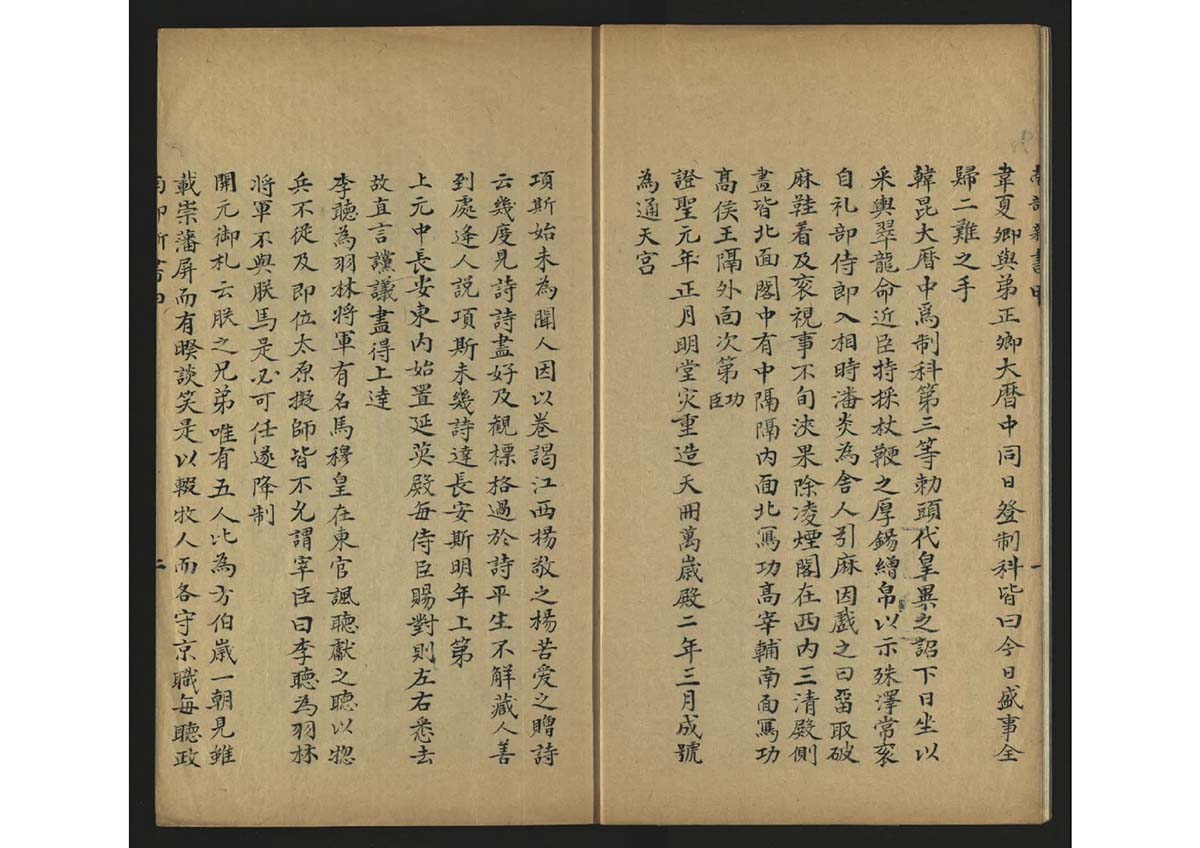 韋夏卿與弟正卿大曆中同日登制科皆曰今日盛事全
歸二難之手
韓昆大曆中爲制科第三等勅頭代皇異之詔下日坐以
采輿翠龍命近臣持採杖鞭之厚錫繒帛以示殊澤常衮
自礼部侍郎入相時潘炎為舍人引麻因戲之曰留取破
麻鞋着及衮視事不旬浹果除凌煙閣在西内三清殿側
畫皆北面閣中有中隔隔内面北寫功高宰輔南面寫功
高侯王隔外面次第功臣
證聖元年正月明堂灾重造天冊萬嵗殿二年三月成號
為通天宮
項斯始未為聞人因以卷謁江西楊敬之楊苦爱之贈詩
云幾度見詩詩盡好及觀標格過於詩平生不解藏人善
到處逢人説項斯未幾詩達長安斯明年上第
上元中長安東内始置延英殿每侍臣賜對則左右悉去
故直言讜議盡得上達
李聽為羽林將軍有名馬穆皇在東宫諷聽獻之聽以捴
兵不從及即位太原擬師皆不允謂宰臣曰李聽為羽林
將軍不與朕馬是必可任遂降制
開元御札云朕之兄弟唯有五人比為方伯嵗一朝見雖
載崇藩屏而有暌談笑是以輟牧人而各守京職每聽政
二